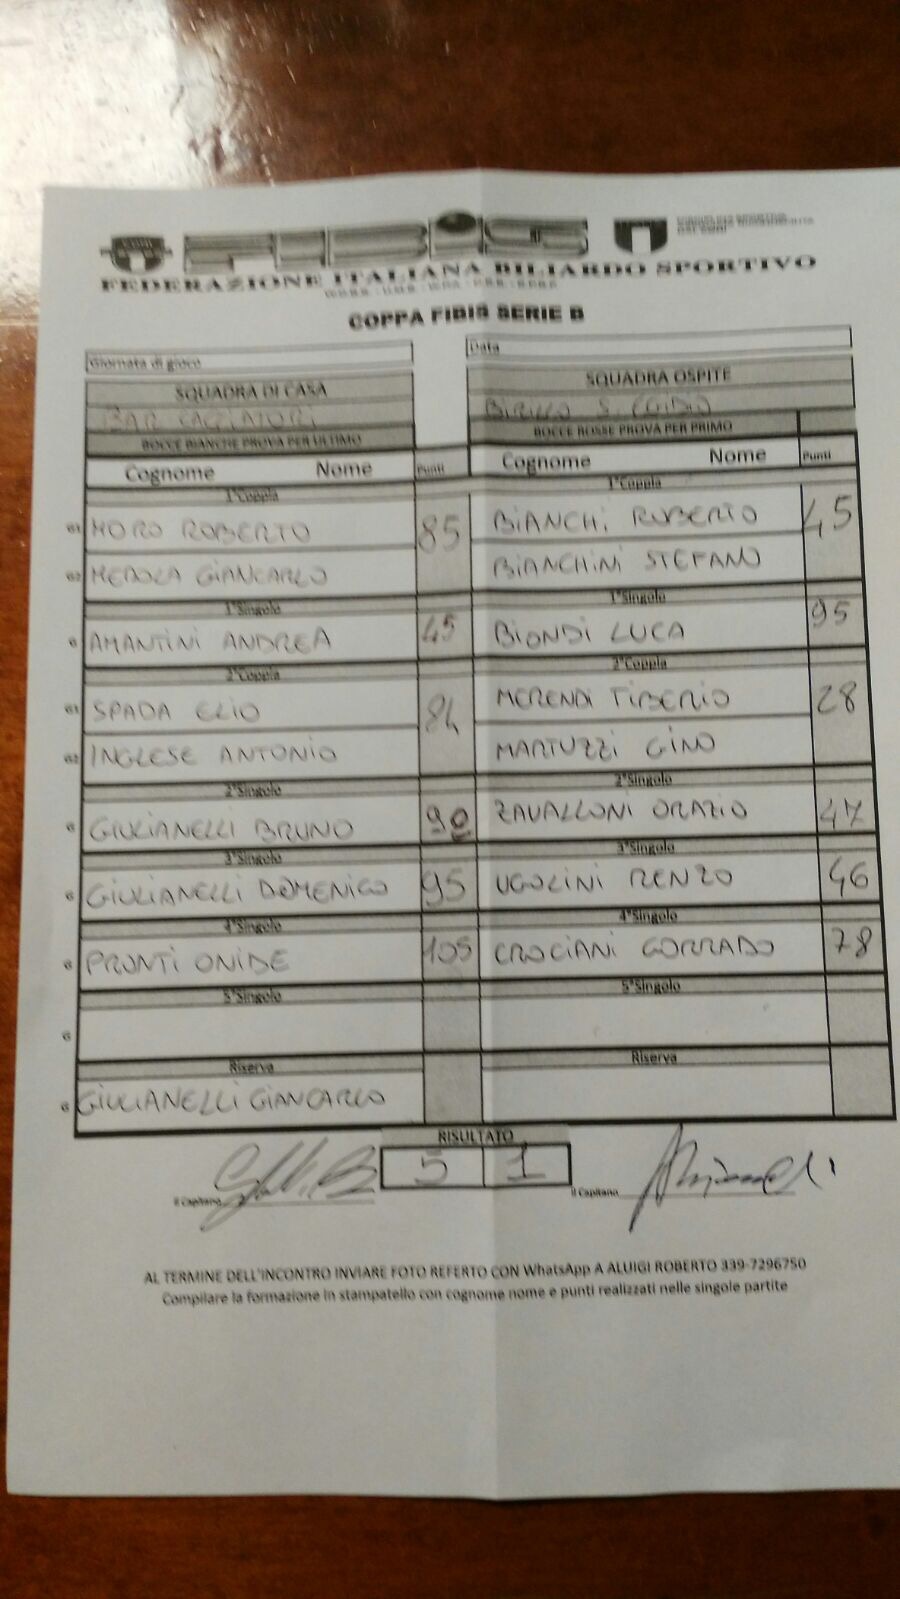 FIBiS
FEDERAZIONE ITALIANA BILIARDO SPORTIVO
COPPA FIBIS SERIE B
Giornata di gioco
Data
SQUADRA DI CASA
SQUADRA OSPITE
BAR CACCIATORI
BIRILLO S. EGIDIO
BOCCE BIANCHE PROVA PER ULTIMO
BOCCE ROSSE PROVA PER PRIMO
Cognome Nome Punti Cognome Nome Punti
1°Coppia 1°Coppia
G1 MORO ROBERTO 85 BIANCHI ROBERTO 45
G2 MEROLA GIANCARLO BIANCHINI STEFANO
1°Singolo 1°Singolo
G AMANTINI ANDREA 45 BIONDI LUCA 95
2°Coppia 2°Coppia
G1 SPADA ELIO 84 MERENDI TIBERIO 28
G2 INGLESE ANTONIO MARTUZZI GINO
2°Singolo 2°Singolo
G GIULIANELLI BRUNO 90 ZAVALLONI ORAZIO 47
3°Singolo 3°Singolo
G GIULIANELLI DOMENICO 95 UGOLINI RENZO 46
4°Singolo 4°Singolo
G PRONTI ONIDE 105 CROCIANI CORRADO 78
5°Singolo 5°Singolo
G
Riserva Riserva
G GIULIANELLI GIANCARLO
RISULTATO
5 1
Il Capitano Il Capitano
AL TERMINE DELL'INCONTRO INVIARE FOTO REFERTO CON WhatsApp A ALUIGI ROBERTO 339-7296750
Compilare la formazione in stampatello con cognome nome e punti realizzati nelle singole partite